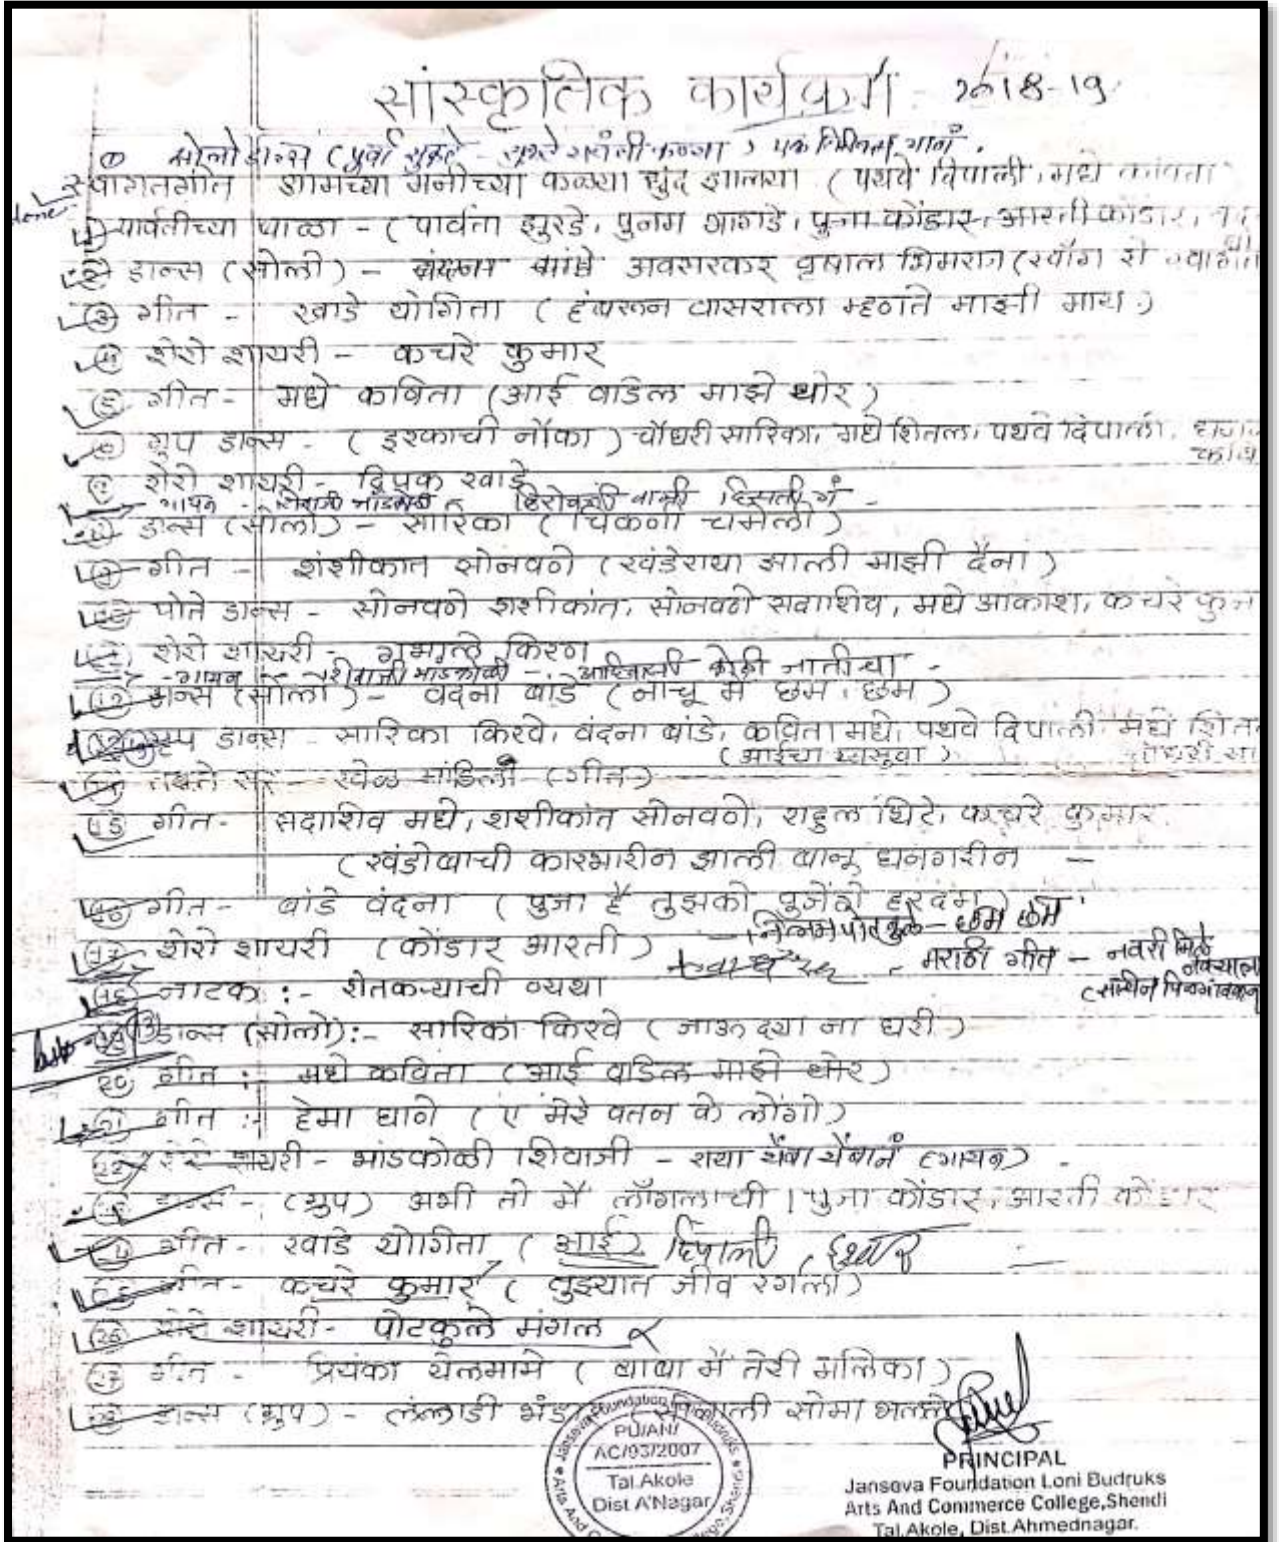 सांस्कृतिक कार्यक्रम - 2018-19
① सोलो डान्स (पुर्वा मुक्ते - ) एक गाणं.
स्वागतगीत आमच्या मनीच्या कळ्या धुंद झाल्या (पथवे दिपाली, मधे कविता
done
① पार्वतीच्या बाळा - (पार्वता झुरडे, पुनम भांगडे, पुजा कोंडार, आरती कोंडार,
② डान्स (सोलो) - वंदना बांबे अवसरकर वृषाल भिमराज (
③ गीत - खाडे योगिता (हंबरून वासराला म्हणते माझी माय)
④ शेरो शायरी - कचरे कुमार
⑤ गीत - मधे कविता (आई वडिल माझे थोर)
⑥ ग्रुप डान्स - (इश्काची नौका) चौधरी सारिका, मधे शितल, पथवे दिपाली,
⑦ शेरो शायरी - दिपक खाडे
गायन - शिवाजी भांडकोळी - हिरोवानी दिसती गं -
⑧ डान्स (सोलो) - सारिका (चिकनी चमेली)
⑨ गीत - शंशीकांत सोनवणे (खंडेराया झाली माझी दैना)
⑩ पोते डान्स - सोनवणे शशीकांत, सोनवणे सदाशिव, मधे आकाश, कचरे कुमा
⑪ शेरो शायरी - गभाले किरण
- गायन - शिवाजी भांडकोळी - आदिवासी कोळी जातीचा.
⑫ डान्स (सोलो) - वंदना बांडे (नाचू मैं छम छम)
ग्रुप डान्स - सारिका किरवे, वंदना बांडे, कविता मधे, पथवे दिपाली, मधे शितल
(आईचा
सर - खेळ मांडिला (गीत)
⑮ गीत - सदाशिव मधे, शशीकांत सोनवणे, राहुल धिटे, कचरे कुमार
(खंडोबाची कारभारीन झाली बानू धनगरीन -
⑯ गीत - बांडे वंदना (पुजा है तुझको पुजेंगे हरदम)
⑰ शेरो शायरी (कोंडार आरती) - निलम पोटकुले - छम छम
- मराठी गीत - नवरी मिळे नवऱ्याला
(सचिन पिळगांवकर
⑱ नाटक :- शेतकऱ्याची व्यथा
⑲ डान्स (सोलो):- सारिका किरवे (जाऊ द्या ना घरी)
⑳ गीत :- मधे कविता (आई वडिल माझे थोर)
㉑ गीत :- हेमा घाणे (ए मेरे वतन के लोगो)
㉒ शेरो शायरी - भांडकोळी शिवाजी - राया चैबा चैबानं (गायन) -
डान्स - (ग्रुप) अभी तो मैं लॉगलाची । पुजा कोंडार, आरती कोंडार
गीत - खाडे योगिता (आई) दिपाली,
गीत - कचरे कुमार (तुझ्यात जीव रंगला)
㉖ शेरो शायरी - पोटकुले मंगल
㉗ गीत - प्रियंका येलमामे (बाबा मैं तेरी मलिका)
㉘ डान्स (ग्रुप) - लल्लाटी भंडा
PU/AN/
AC/93/2007
Tal.Akole
Dist A'Nagar
PRINCIPAL
Janseva Foundation Loni Budruks
Arts And Commerce College,Shendi
Tal.Akole, Dist.Ahmednagar.